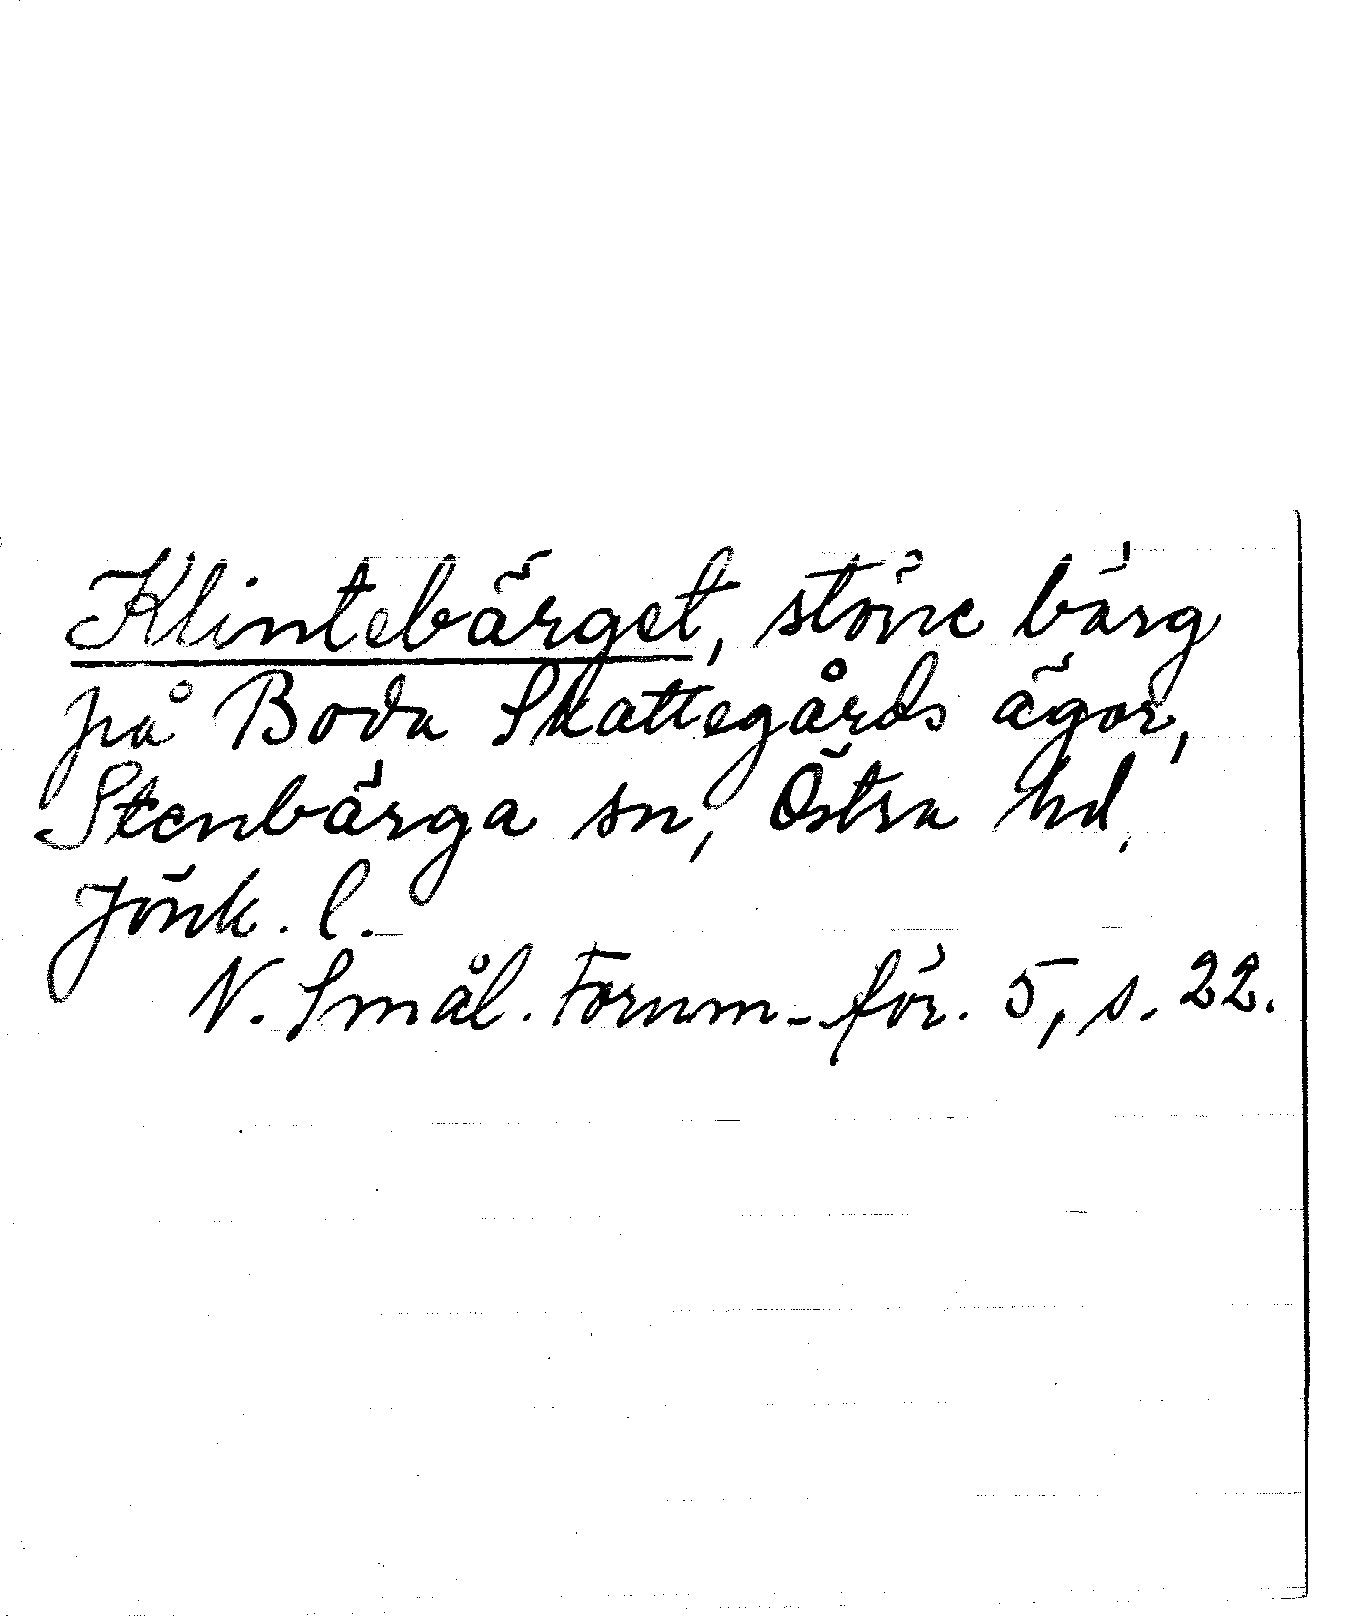 Klintebärget, större bärg
på Boda Skattegårds ägor,
Stenbärga sn, Östra hd,
Jönk. l.
N. Smål. Fornm.-för. 5, s. 22.